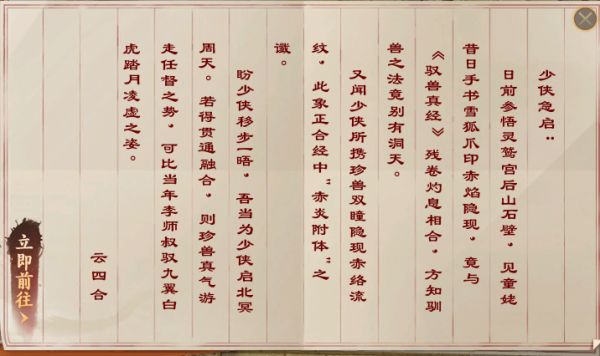 少侠急启：
日前参悟灵鹫宫后山石壁，见童姥
昔日手书雪狐爪印赤焰隐现，竟与
《驭兽真经》残卷灼息相合，方知驯
兽之法竟别有洞天。
又闻少侠所携珍兽双瞳隐现赤络流
纹，此象正合经中“赤炎附体”之
谶。
盼少侠移步一晤，吾当为少侠启北冥
周天。若得贯通融合，则珍兽真气游
走任督之势，可比当年李师叔驭九翼白
虎踏月凌虚之姿。
云四合
立即前往